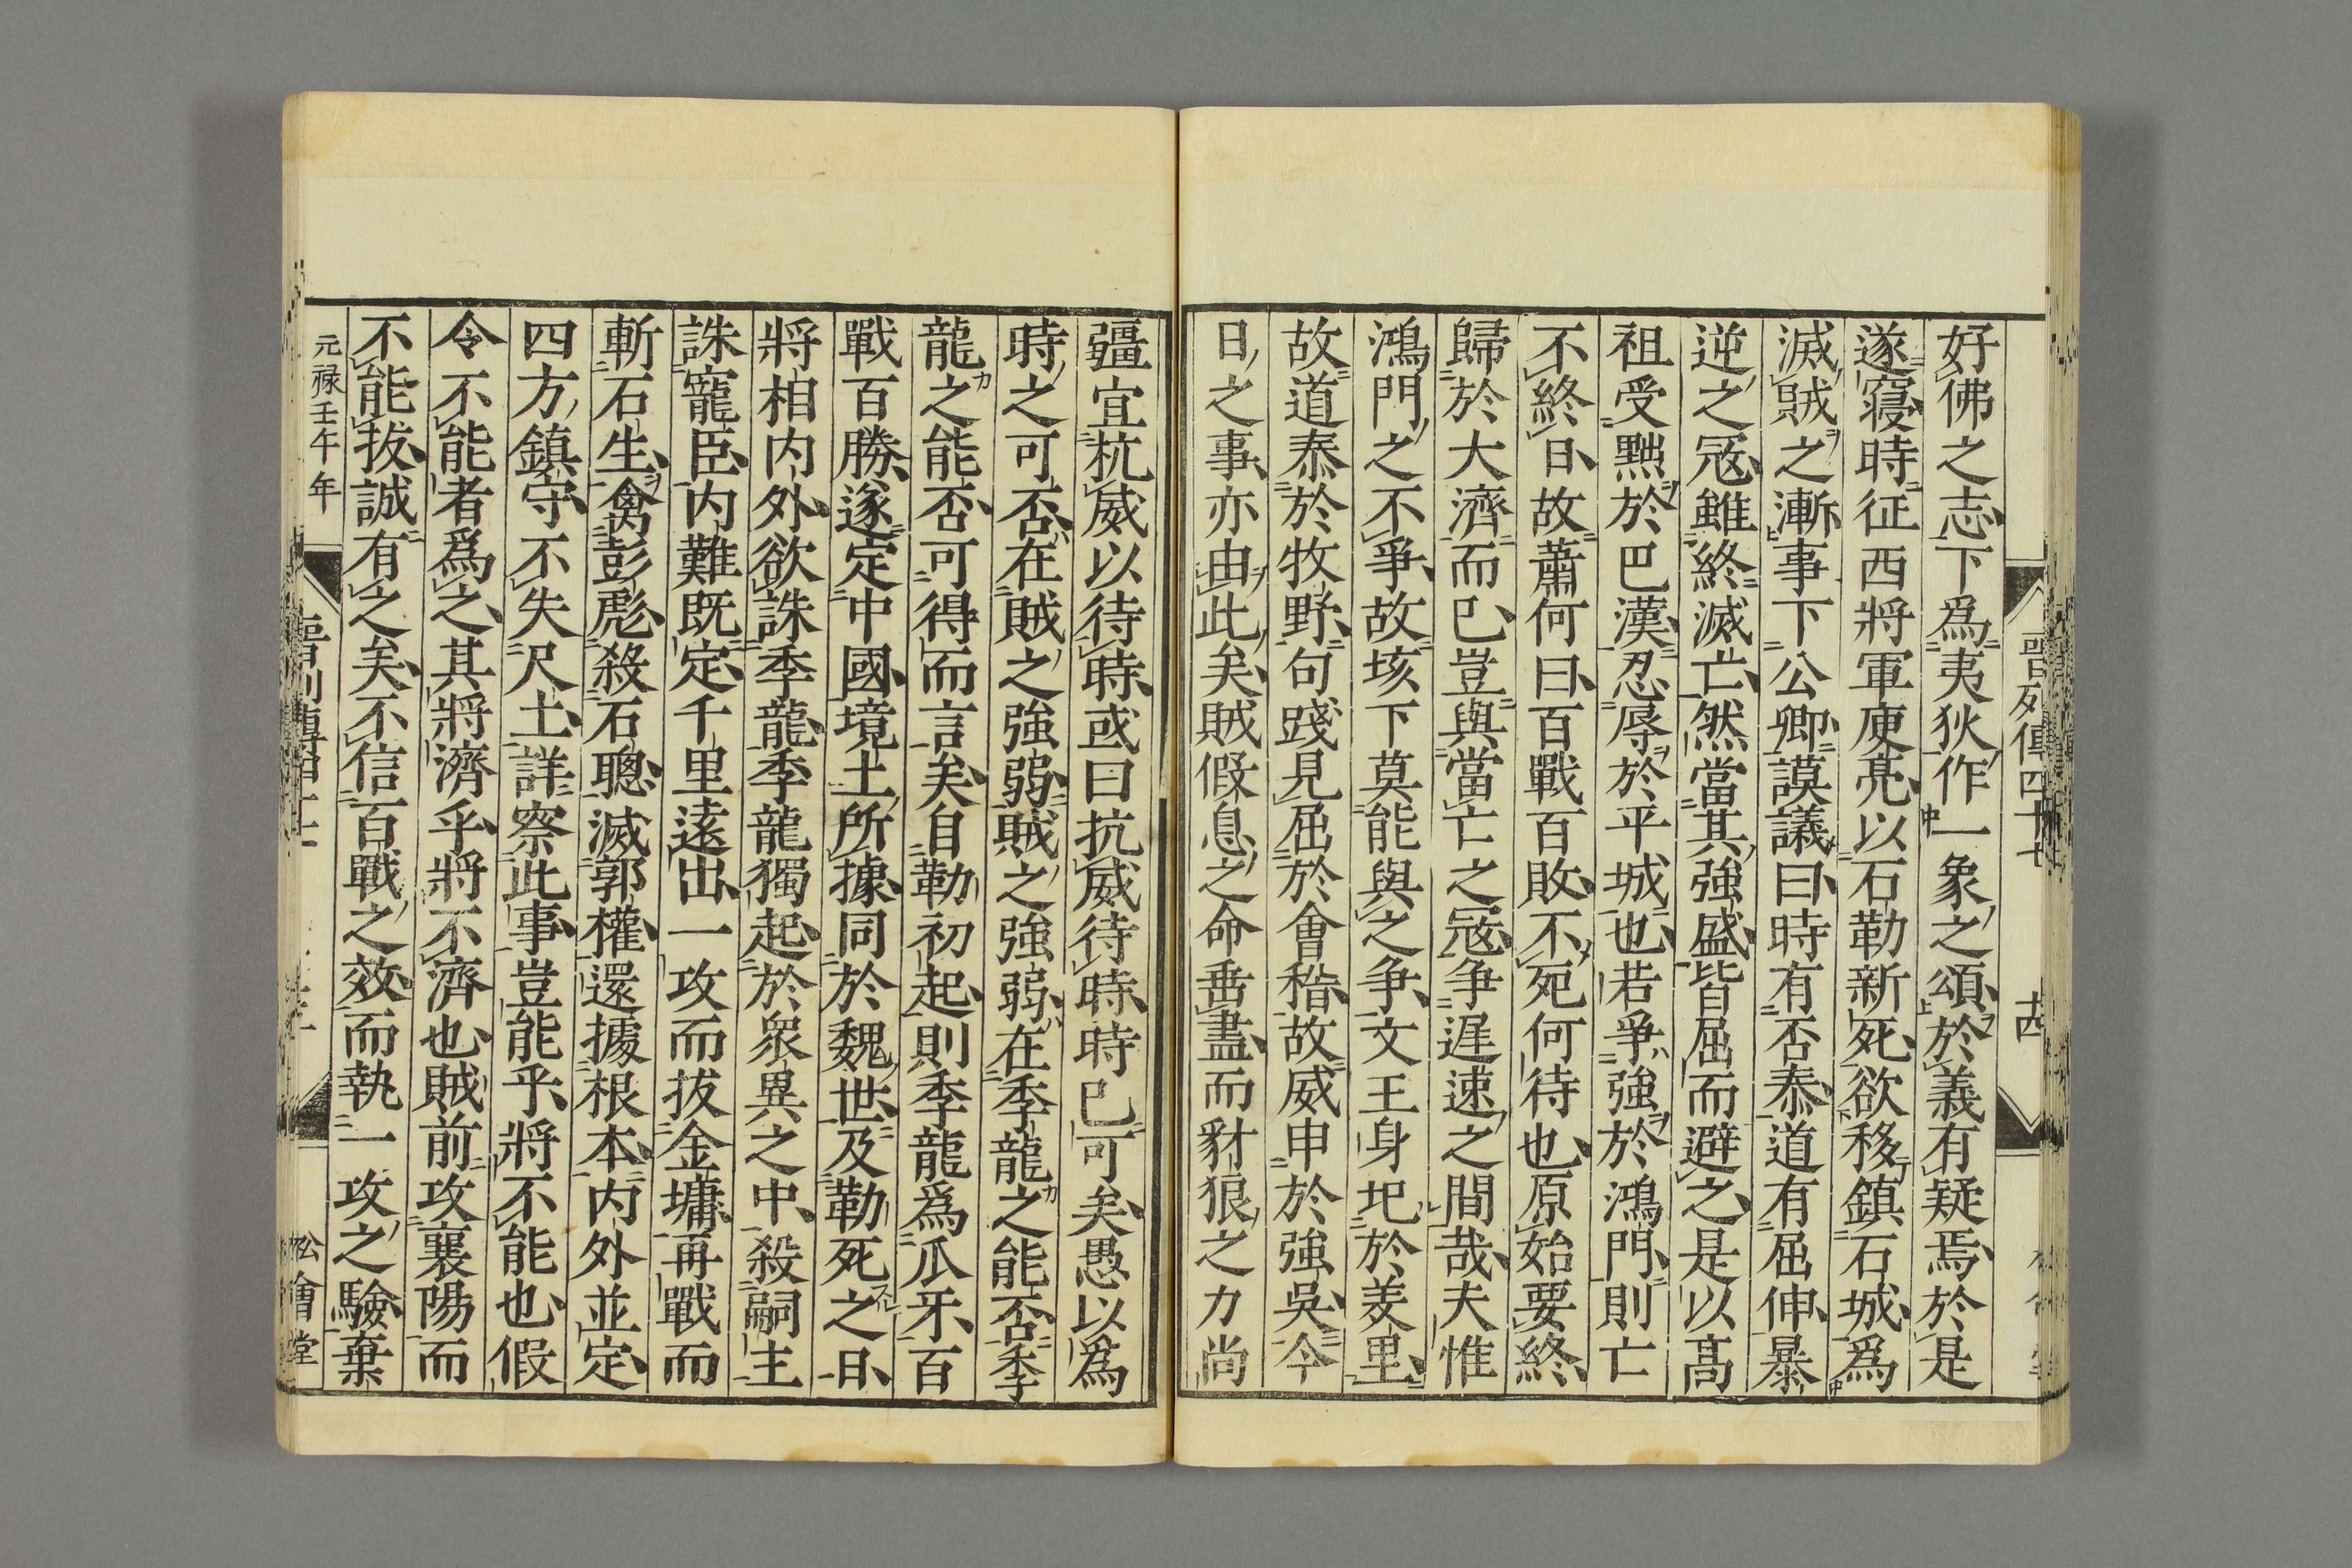 晉列傳四十七
十四
好佛之志下為夷狄作一象之頌於義有疑焉於是
遂寢時征西將軍庾亮以石勒新死欲移鎮石城為
滅賊之漸事下公卿謨議曰時有否泰道有屈伸暴
逆之寇雖終滅亡然當其強盛皆屈而避之是以髙
祖受黜於巴漢忍辱於平城也若爭強於鴻門則亡
不終日故蕭何曰百戰百敗不死何待也原始要終
歸於大濟而已豈與當亡之寇爭遲速之間哉夫惟
鴻門之不爭故垓下莫能與之爭文王身圮於羑里
故道泰於牧野句踐見屈於會稽故威申於強吳今
日之事亦由此矣賊假息之命垂盡而豺狼之力尚
疆宜杭威以待時或曰抗威待時時已可矣愚以爲
時之可否在賊之強弱賊之強弱在季龍之能否季
龍之能否可得而言矣自勒初起則季龍爲爪牙百
戰百勝遂定中國境土所據同於魏世及勒死之日
將相内外欲誅季龍季龍獨起於衆異之中殺嗣主
誅寵臣内難既定千里遠出一攻而拔金墉再戰而
斬石生禽彭彪殺石聰滅郭權還據根本内外並定
四方鎮守不失尺土詳察此事豈能乎將不能也假
令不能者爲之其將濟乎將不濟也賊前攻襄陽而
不能拔誠有之矣不信百戰之效而執一攻之驗棄
元禄壬午年
松會堂